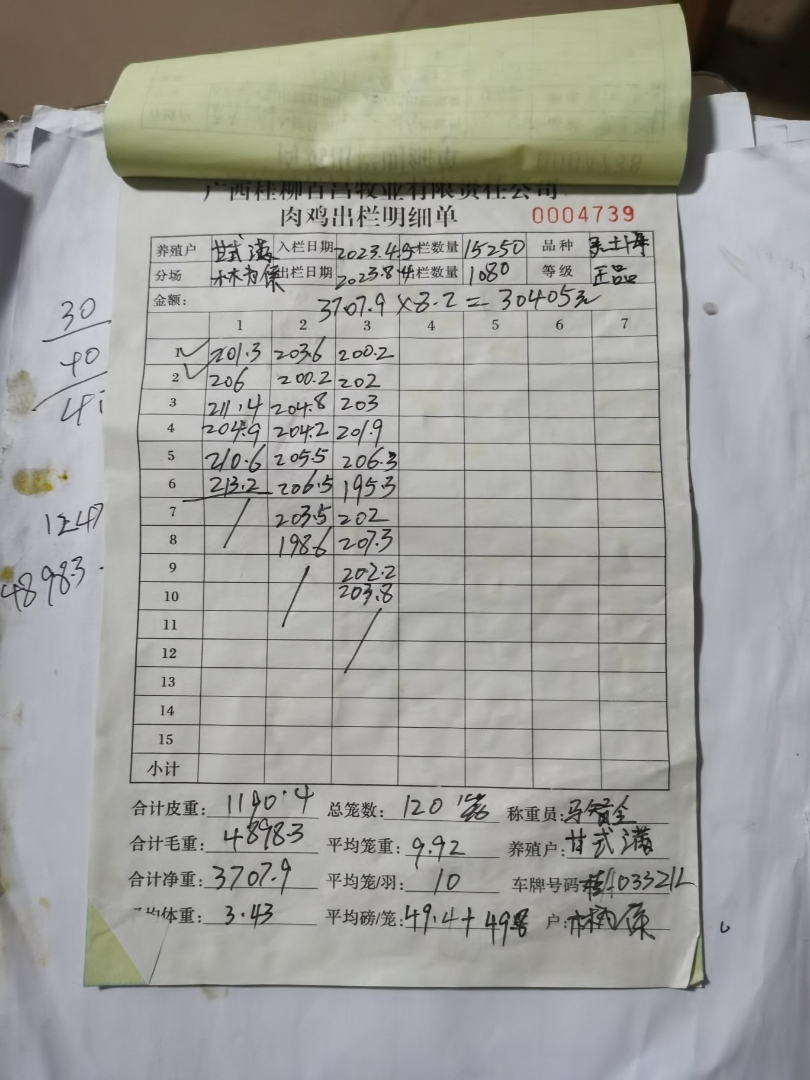 广西桂柳百昌牧业有限责任公司
肉鸡出栏明细单 0004739
养殖户 甘式满 入栏日期 2023.4.5 栏数量 15250 品种
分场 出栏日期 2023.8.4 栏数量 1080 等级 正品
金额: 3707.9 × 8.2 = 30405元
1 2 3 4 5 6 7
1 201.3 203.6 200.2
2 206 200.2 202
3 211.4 204.8 203
4 204.9 204.2 201.9
5 210.6 205.5 206.3
6 213.2 206.5 195.3
7 203.5 202
8 198.6 207.3
9 202.2
10 203.8
11
12
13
14
15
小计
合计皮重: 1190.4 总笼数: 120 称重员:
合计毛重: 4898.3 平均笼重: 9.92 养殖户: 甘式满
合计净重: 3707.9 平均笼/羽: 10 车牌号码
体重: 3.43 平均磅/笼: 49.4+ 户:
30
40
48983